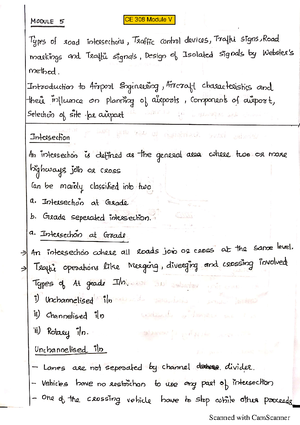 MODULE 5
CE 308 Module V
Types of road intersections, Traffic control devices, Traffic signs, Road
markings and Traffic signals, Design of Isolated signals by Webster's
method.
Introduction to Airport Engineering, Aircraft characteristics and
their influence on planning of airports, Component of airport,
Selection of site for airport
Intersection
An intersection is defined as the general area where two or more
highways join or cross
Can be mainly classified into two
a. Intersection at Grade
b. Grade seperated intersection.
a. Intersection at Grade
→ An intersection where all roads join or cross at the same level.
→ Traffic operations like Merging, diverging and crossing involved
Types of At grade I/n.
i) Unchannelised i/n
ii) Channelised i/n
iii) Rotary i/n.
Unchannelised i/n
- Lanes are not seprated by channel divider.
- Vehicles have no restriction to use any part of intersection
- One of the crossing vehicle have to stop while other proceeds
Scanned with CamScanner